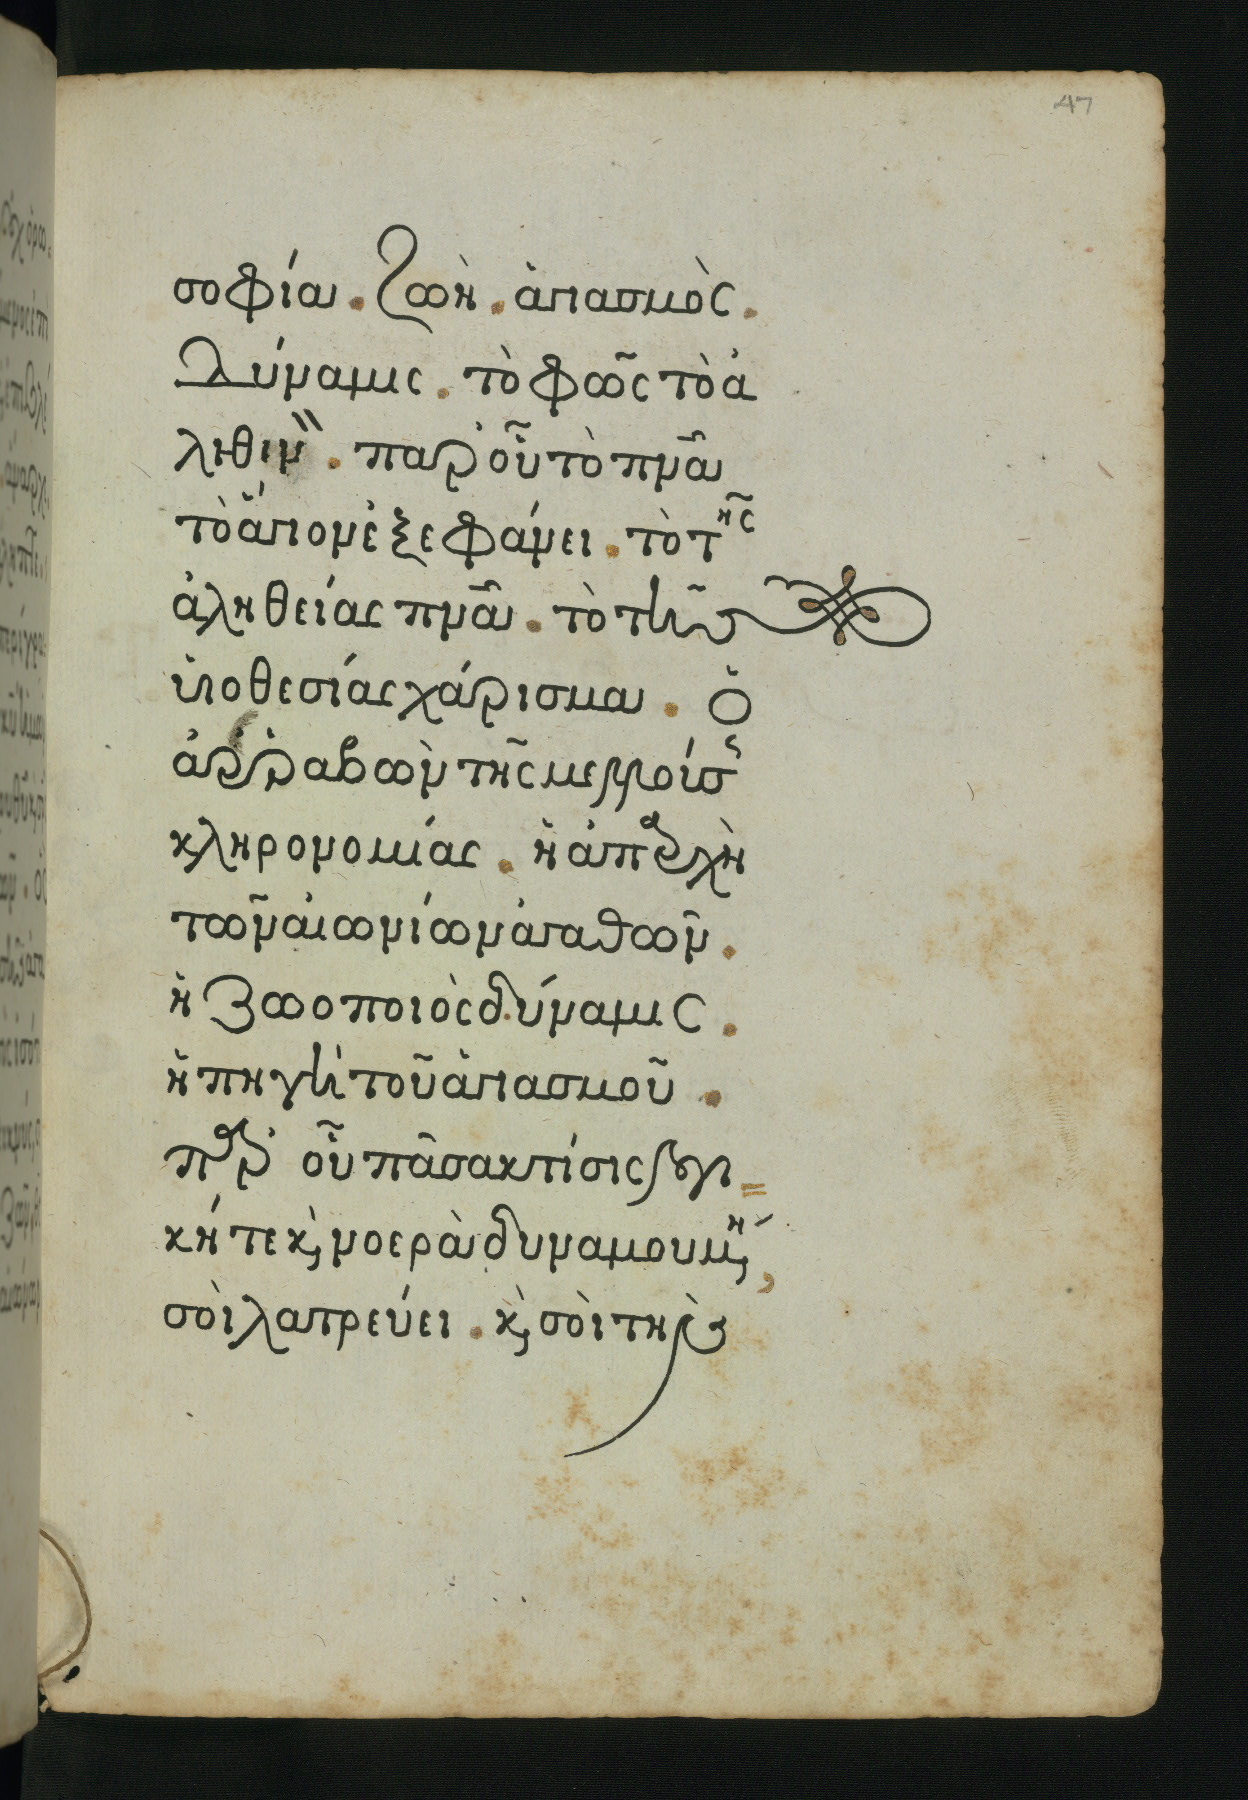 47
σοφία. ζωὴ. ἁγιασμὸς.
Δύναμις. τὸ φῶς τὸ ἀ
ληθινὸν. παρ' οὗ τὸ πνᾶ
τὸ ἅγιον ἐξεφάνει. τὸ τῆς
ἀληθείας πνᾶ. τὸ τῆς
υἱοθεσίας χάρισμα. ὁ
ἀρραβὼν τῆς μελλούσης
κληρονομίας. ἡ ἀπαρχὴ
τῶν αἰωνίων ἀγαθῶν.
ἡ ζωοποιὸς δύναμις.
ἡ πηγὴ τοῦ ἁγιασμοῦ.
παρ' οὗ πᾶσα κτίσις λογι=
κή τε κ̀ νοερὰ δυναμουμένη,
σοὶ λατρεύει. κ̀ σοὶ τὴν